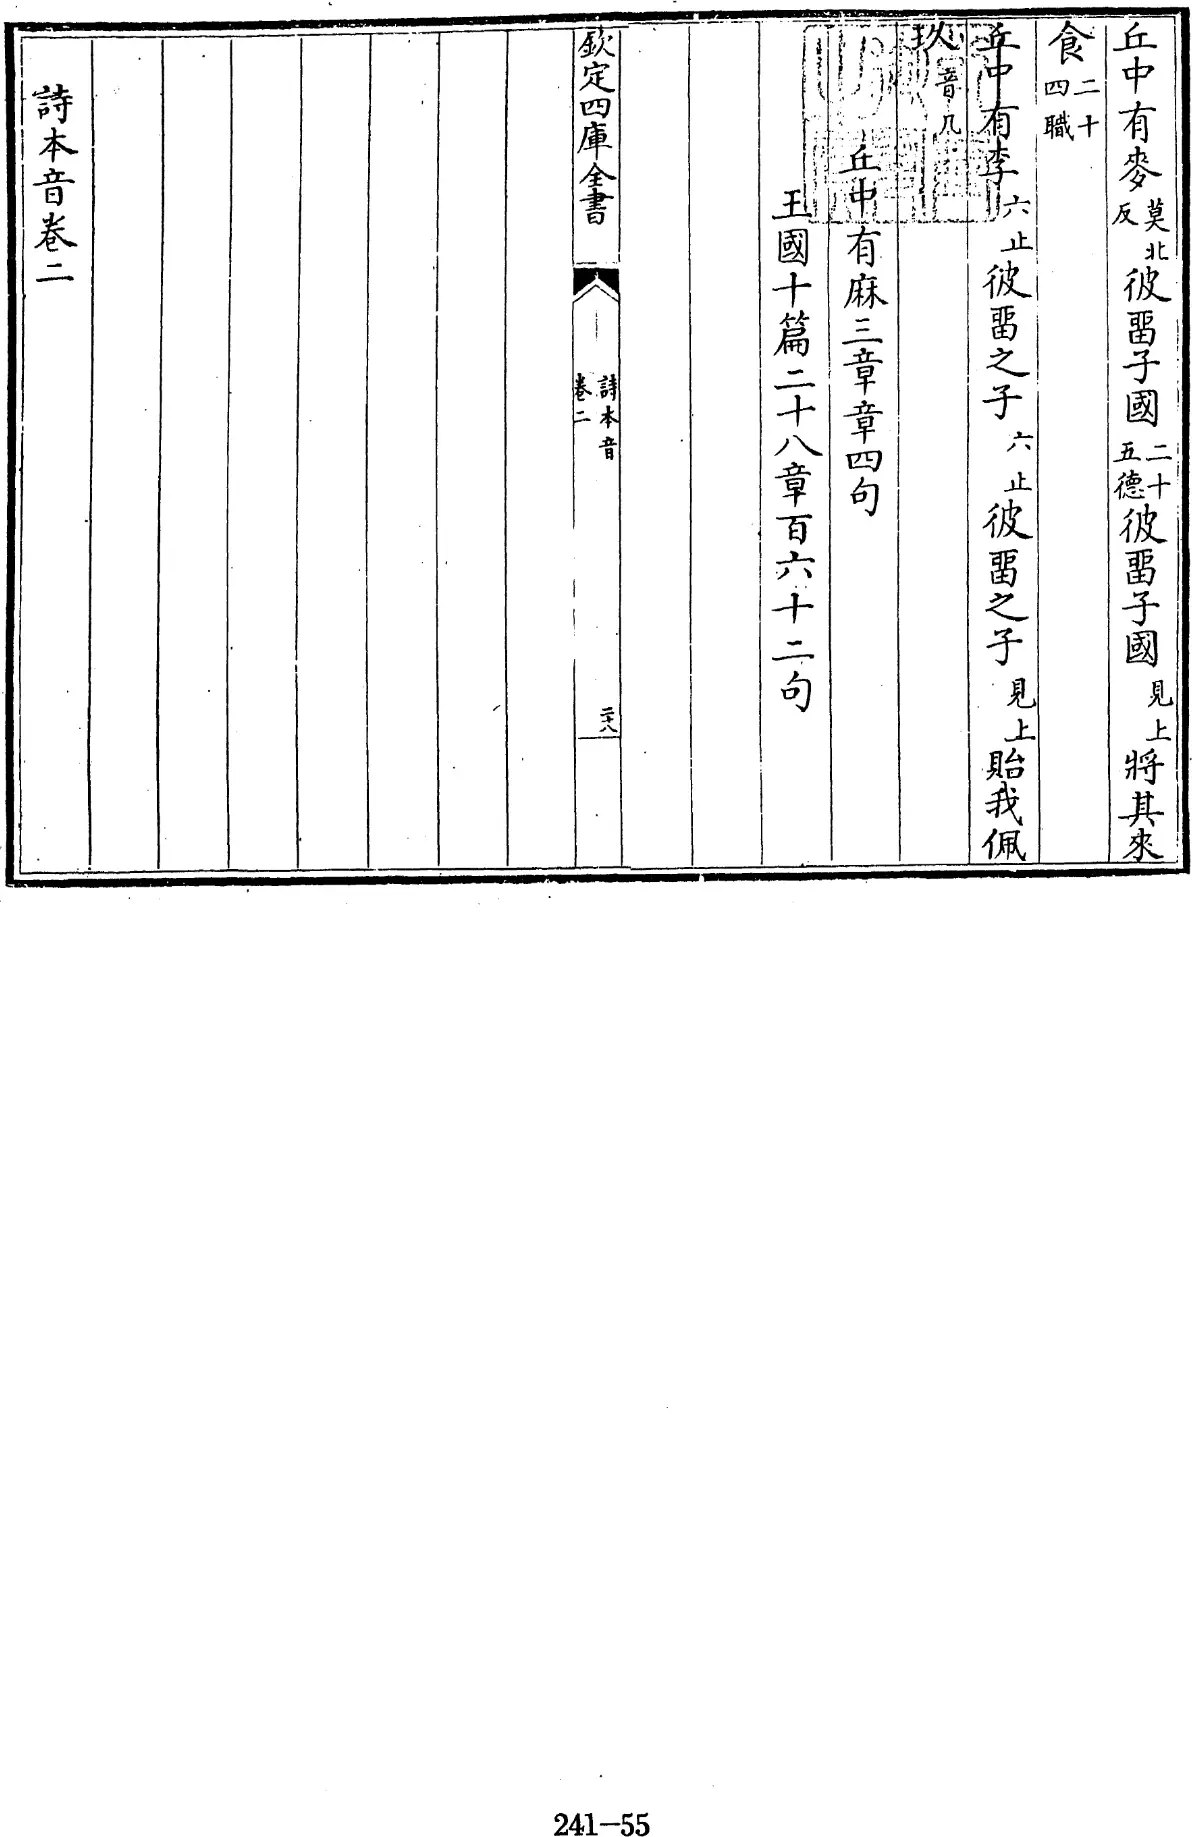 丘中有麥莫北反彼畱子國二十五德彼畱子國見上將其來
食二十四職
丘中有李六止彼畱之子六止彼畱之子見上貽我佩
玖音几
丘中有麻三章章四句
王國十篇二十八章百六十二句
欽定四庫全書
詩本音
卷二
二十八
詩本音卷二
241-55